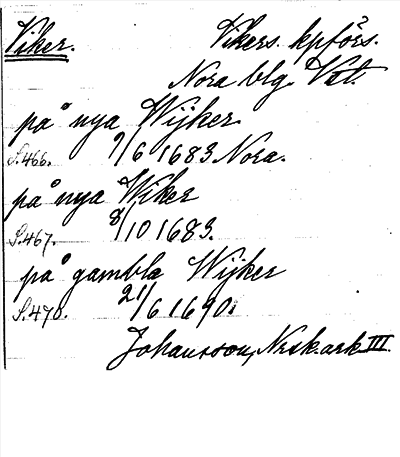 Viker. Vikers. kpförs.
Nora blg. Vstl.
på nya Wijker.
S.466. 9/6 1683. Nora.
på nya Wiker
S.467. 8/10 1683.
på gambla Wijker
S.470. 21/6 1690.
Johansson, Noraskogs ark III.